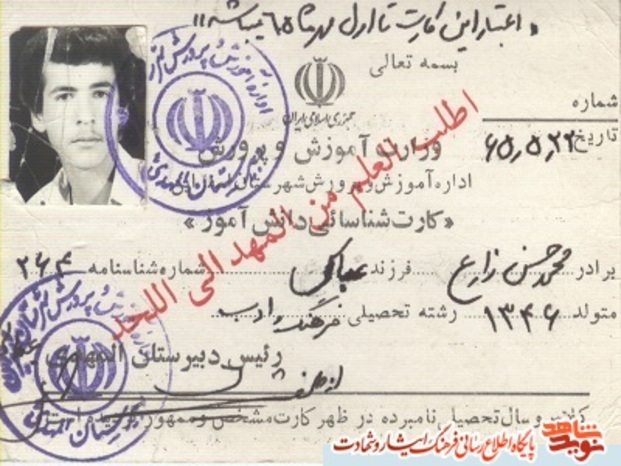 «اعتبار این کارت تا اول مهرماه ۶۵ میباشد»
بسمه تعالی
جمهوری اسلامی ایران
شماره
تاریخ ۶۵٫۵٫۲۲
وزارت آموزش و پرورش
اداره آموزش و پرورش شهرستان
«کارت شناسائی دانش آموز»
اطلب العلم من المهد الی اللحد
برادر محمد حسن زارع فرزند عباس شماره شناسنامه ۲۶۴
متولد ۱۳۴۶ رشته تحصیلی فرهنگ و ادب
رئیس دبیرستان المهدی
از طرف
کلاس و سال تحصیل نامبرده در ظهر کارت مشخص و ممهور گردیده است
نوید شاهد
پایگاه اطلاع رسانی فرهنگ ایثار و شهادت